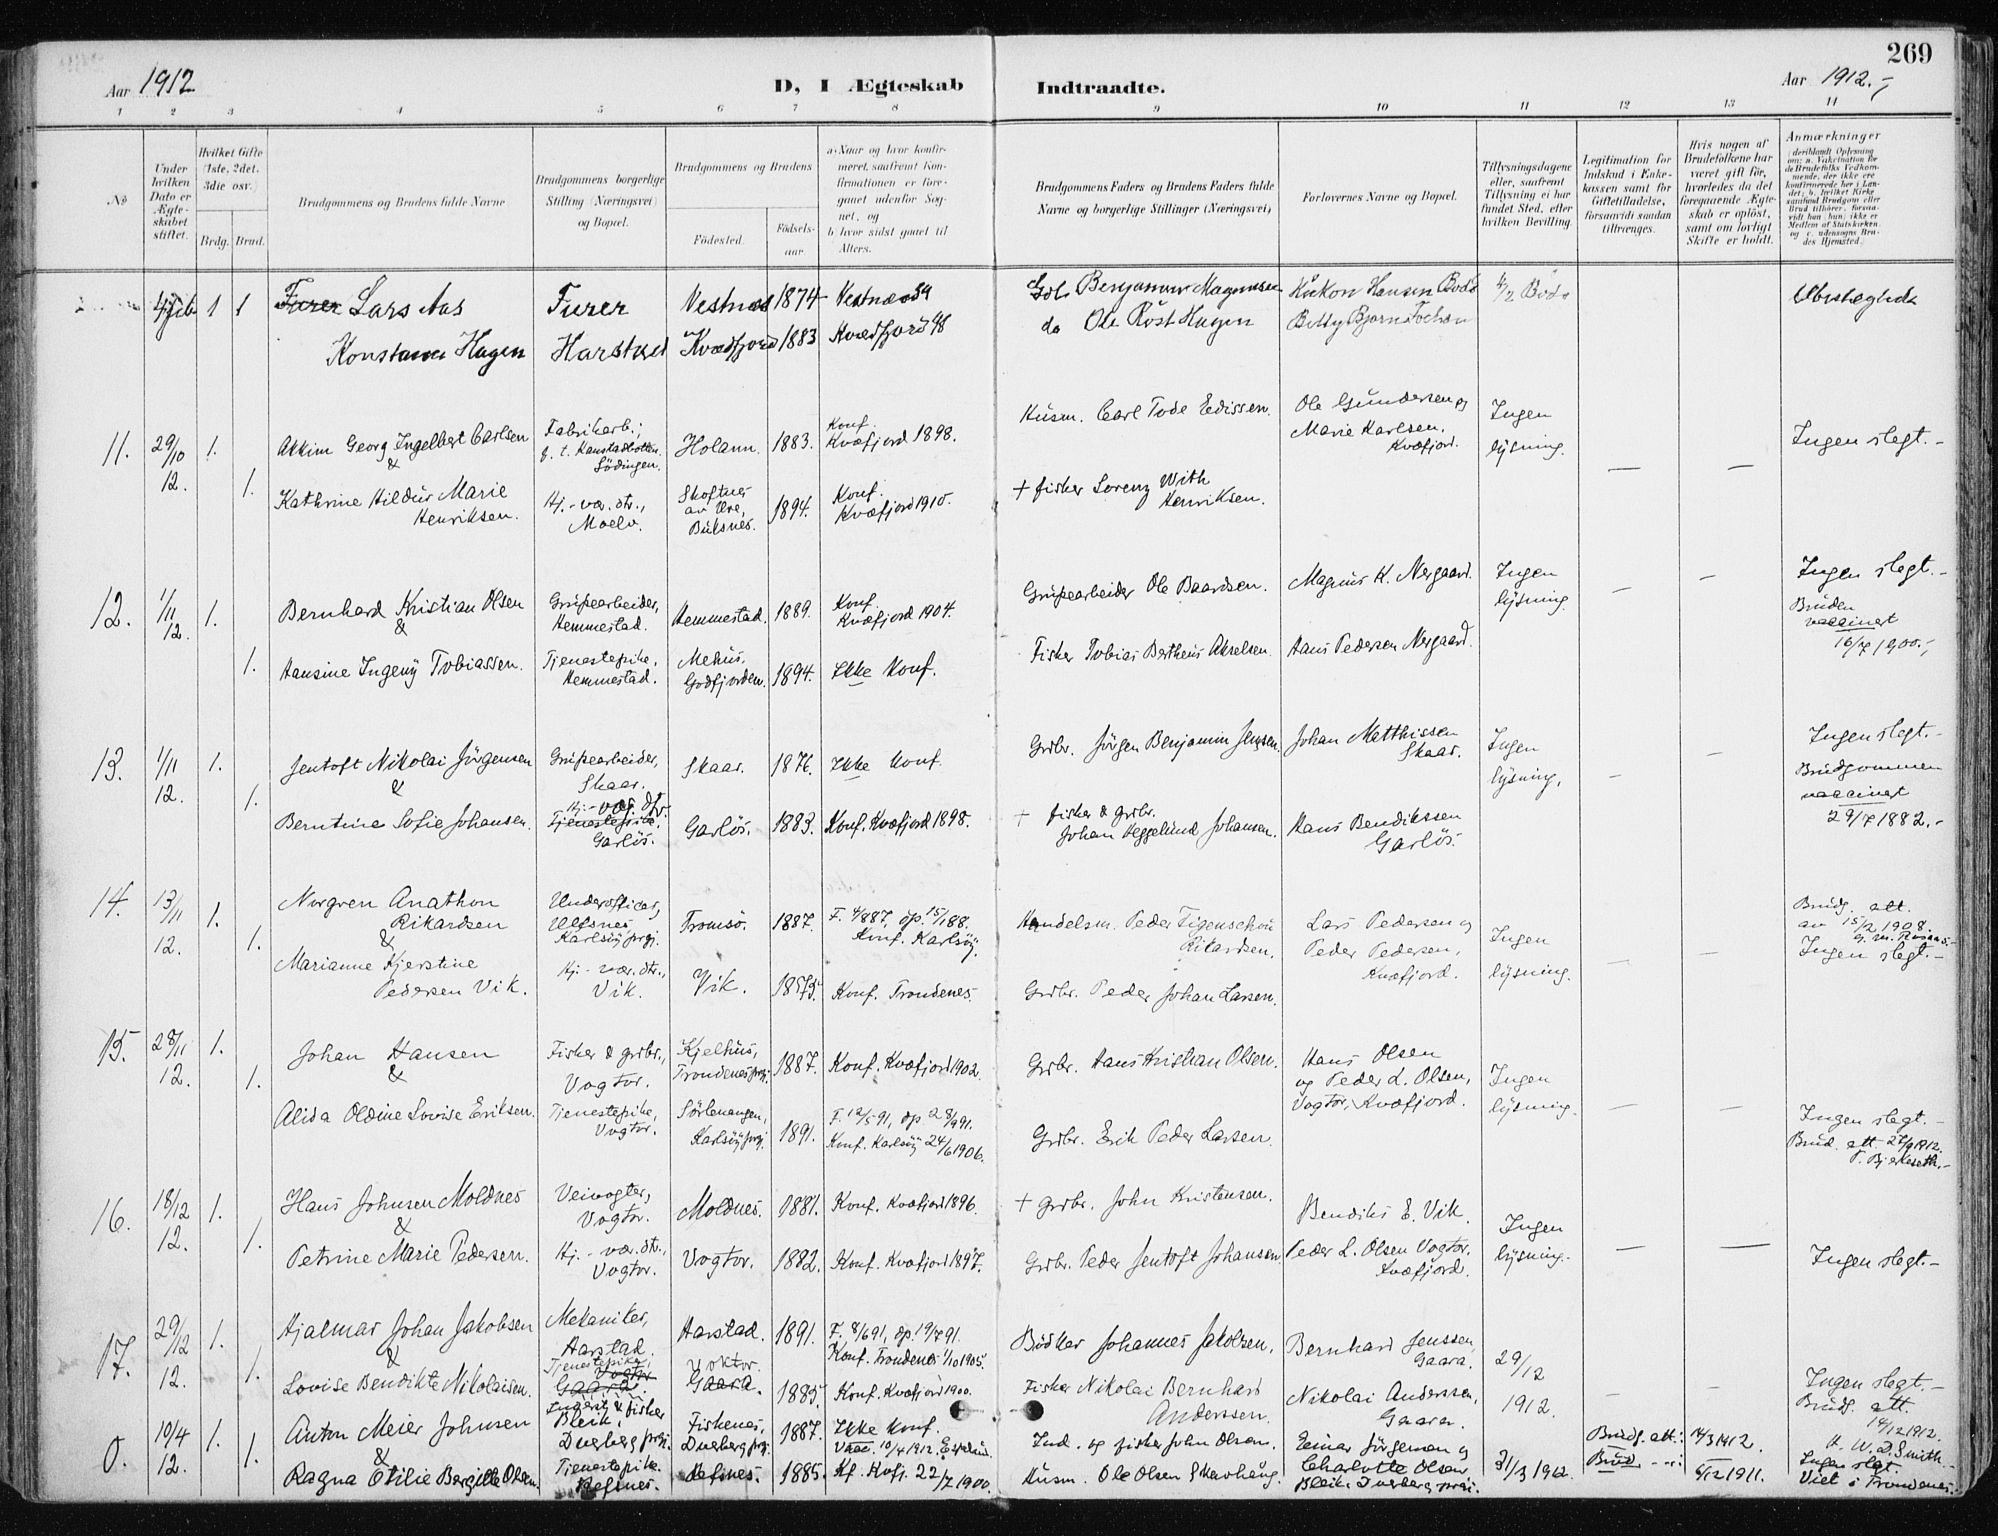 269
Aar 1912
D, I Ægteskab
Indtraadte.
Aar 1912.-
1 2 3 4 5 6 7 8 9 10 11 12 13 14
No
Under hvilken Dato er Ægteskabet stiftet.
Hvilket Gifte (1ste, 2det, 3die osv.)
Brdg. Brud.
Brudgommens og Brudens fulde Navne
Brudgommens borgerlige Stilling (Næringsvei) og Bopæl.
Brudgommens og Brudens
Fødested.
Fødselsaar
a) Naar og hvor konfirmeret, saafremt Konfirmationen er foregaaet udenfor Sognet, og
b) hvor sidst gaaet til Alters.
Brudgommens Faders og Brudens Faders fulde Navne og borgerlige Stillinger (Næringsvei)
Forlovernes Navne og Bopæl.
Tillysningsdagene eller, saafremt Tillysning ei har fundet Sted, efter hvilken Bevilling.
Legitimation for Indskud i Enkekassen samt for Giftetilladelse, forsaavidt saadan tiltrænges.
Hvis nogen af Brudefolkene har været gift før, hvorledes da det foregaaende Ægteskab er opløst, samt om lovligt Skifte er holdt.
Anmærkninger
1 1 Lars Aas Furer Vestnæs 1874 Vestnæs 89 Benjamin Magnussen Håkon Hansen Bodø Bodø Ubeslægtede
Konstance Hagen Harstad Kvædfjord 1883 Kvædfjord 98 do Ole Røst Hagen Betty
11. 29/10 12. 1. Akkim Georg Ingelbert Carlsen Fabrikarb.; Södingen. Holann. 1883. Konf. Kvæfjord 1898. Husm. Carl Tode Edissen. Ole Gundersen og Marie Karlsen, Kvæfjord. Ingen lysning. — — Ingen slegt.-
&
1. Kathrine Hildur Marie Henriksen. Hj.-vær. dtr., Moelv. Buksnes. 1894. Konf. Kvæfjord 1910. + fisker Lorenz With Henriksen.
12. 1/11 12. 1. Bernhard Kristian Olsen Grubearbeider, Hemmestad. Hemmestad. 1889. Konf. Kvæfjord 1904. Grubearbeider Ole Baardsen. Magnus K. Nergaard. Ingen lysning. — — Ingen slegt.-
&
1. Hansine Ingeny Tobiassen. Tjenestepike, Hemmestad. Mehus, Godfjorden. 1894. Ikke konf. Fisker Tobias Bertheus Akselsen. Hans Pedersen Nergaard. Bruden vaccinert 16/7 1900.-
13. 1/11 12. 1. Jentoft Nikolai Jörgensen Grubearbeider, Skaar. Skaar. 1876. Ikke konf. Grbr. Jörgen Benjamin Jensen. Johan Matthissen Skaar. Ingen lysning. — — Ingen slegt.-
&
1. Berntine Sofie Johansen. Hj.-vær. dtr. Tjenestepike. Garlös. Garlös. 1883. Konf. Kvæfjord 1898. + fisker & grbr. Johan Heggelund Johansen. Hans Bendikssen Garlös. Brudgommen vaccinert 29/7 1882.-
14. 13/11 12. 1. Norgren Anathon Rikardsen Underofficer, Karlsöy prgj. Tromsö. 1887. Konf. Karlsöy. Handelsm. Peder Rikardsen. Lars Pedersen og Peder Pedersen, Kvæfjord. Ingen lysning. — — Brudg. att. av 15/12 1908.
&
1. Marianne Kjerstine Pedersen Vik. Hj.-vær. dtr., Vik. Vik. Konf. Trondenes. Grbr. Peder Johan Larsen. Ingen slegt.-
15. 28/11 12. 1. Johan Hansen Fisker & grbr., Vogtor. Kjelhus, Trondenes prgj. 1887. Konf. Kvæfjord 1902. Grbr. Hans Kristian Olsen. Hans Olsen og Peder L. Olsen, Vogtor, Kvæfjord. Ingen lysning. — —
&
1. Alida Oldine Lovise Eriksen. Tjenestepike, Vogtor. Sörlenangen, Karlsöy prgj. 1891. F. 12/5 91, döp. 28/9 91. Konf. Karlsöy 24/6 1906. Grbr. Erik Peder Larsen. Ingen slegt.- Brud. att.
16. 18/12 12. 1. Hans Johnsen Moldnes Veivogter, Vogtor. Moldnes. 1881. Konf. Kvæfjord 1896. + grbr. John Kristensen. Bendiks E. Vik. Ingen lysning. — —
&
1. Petrine Marie Pedersen. Hj.-vær. dtr., Vogtor. Vogtor. 1882. Konf. Kvæfjord 1897. Grbr. Peder Jentoft Johansen Peder L. Olsen Vogtor, Kvæfjord. Ingen slegt.-
17. 29/12 12. 1. Hjalmar Johan Jakobsen Mekaniker, Harstad. Harstad. 1891. F. 8/6 91, döp. 19/7 91. Konf. Trondenes 1/10 1905. Bödker Johannes Jakobsen. Bernhard Jenssen, Gaara. 29/12 1912. — —
&
1. Lovise Bendikte Nikolaisen. Tjenestepike, Vogtor Gaara. Voktor. Gaara. 1885. Konf. Kvæfjord 1900. Fisker Nikolai Bernhard Anderssen. Nikolai Anderssen, Gaara. Ingen slegt.- Brudg. att. 14/12 1912.
0. 10/4 12. 1. Anton Meier Johnsen & fisker Bleik, Dverberg prgj. Fiskenes, Dverberg prgj. 1887. Ikke konf. Vacc. 10/4 1912. Ind. og fisker John Olsen. Einar Jörgensen og Charlotte Olsen 31/3 1912. Brudg. att.: 14/3 1912.
&
1. Ragna Otilie Bergitte Olsen. Tjenestepike. Refsnes. Refsnes. 1885. Kf. Kvfj. 22/7 1900. Husm. Ole Olsen Bleik, Dverberg prgj. Brud 6/12 1911. Ingen slegt. Viet i Trondenes.